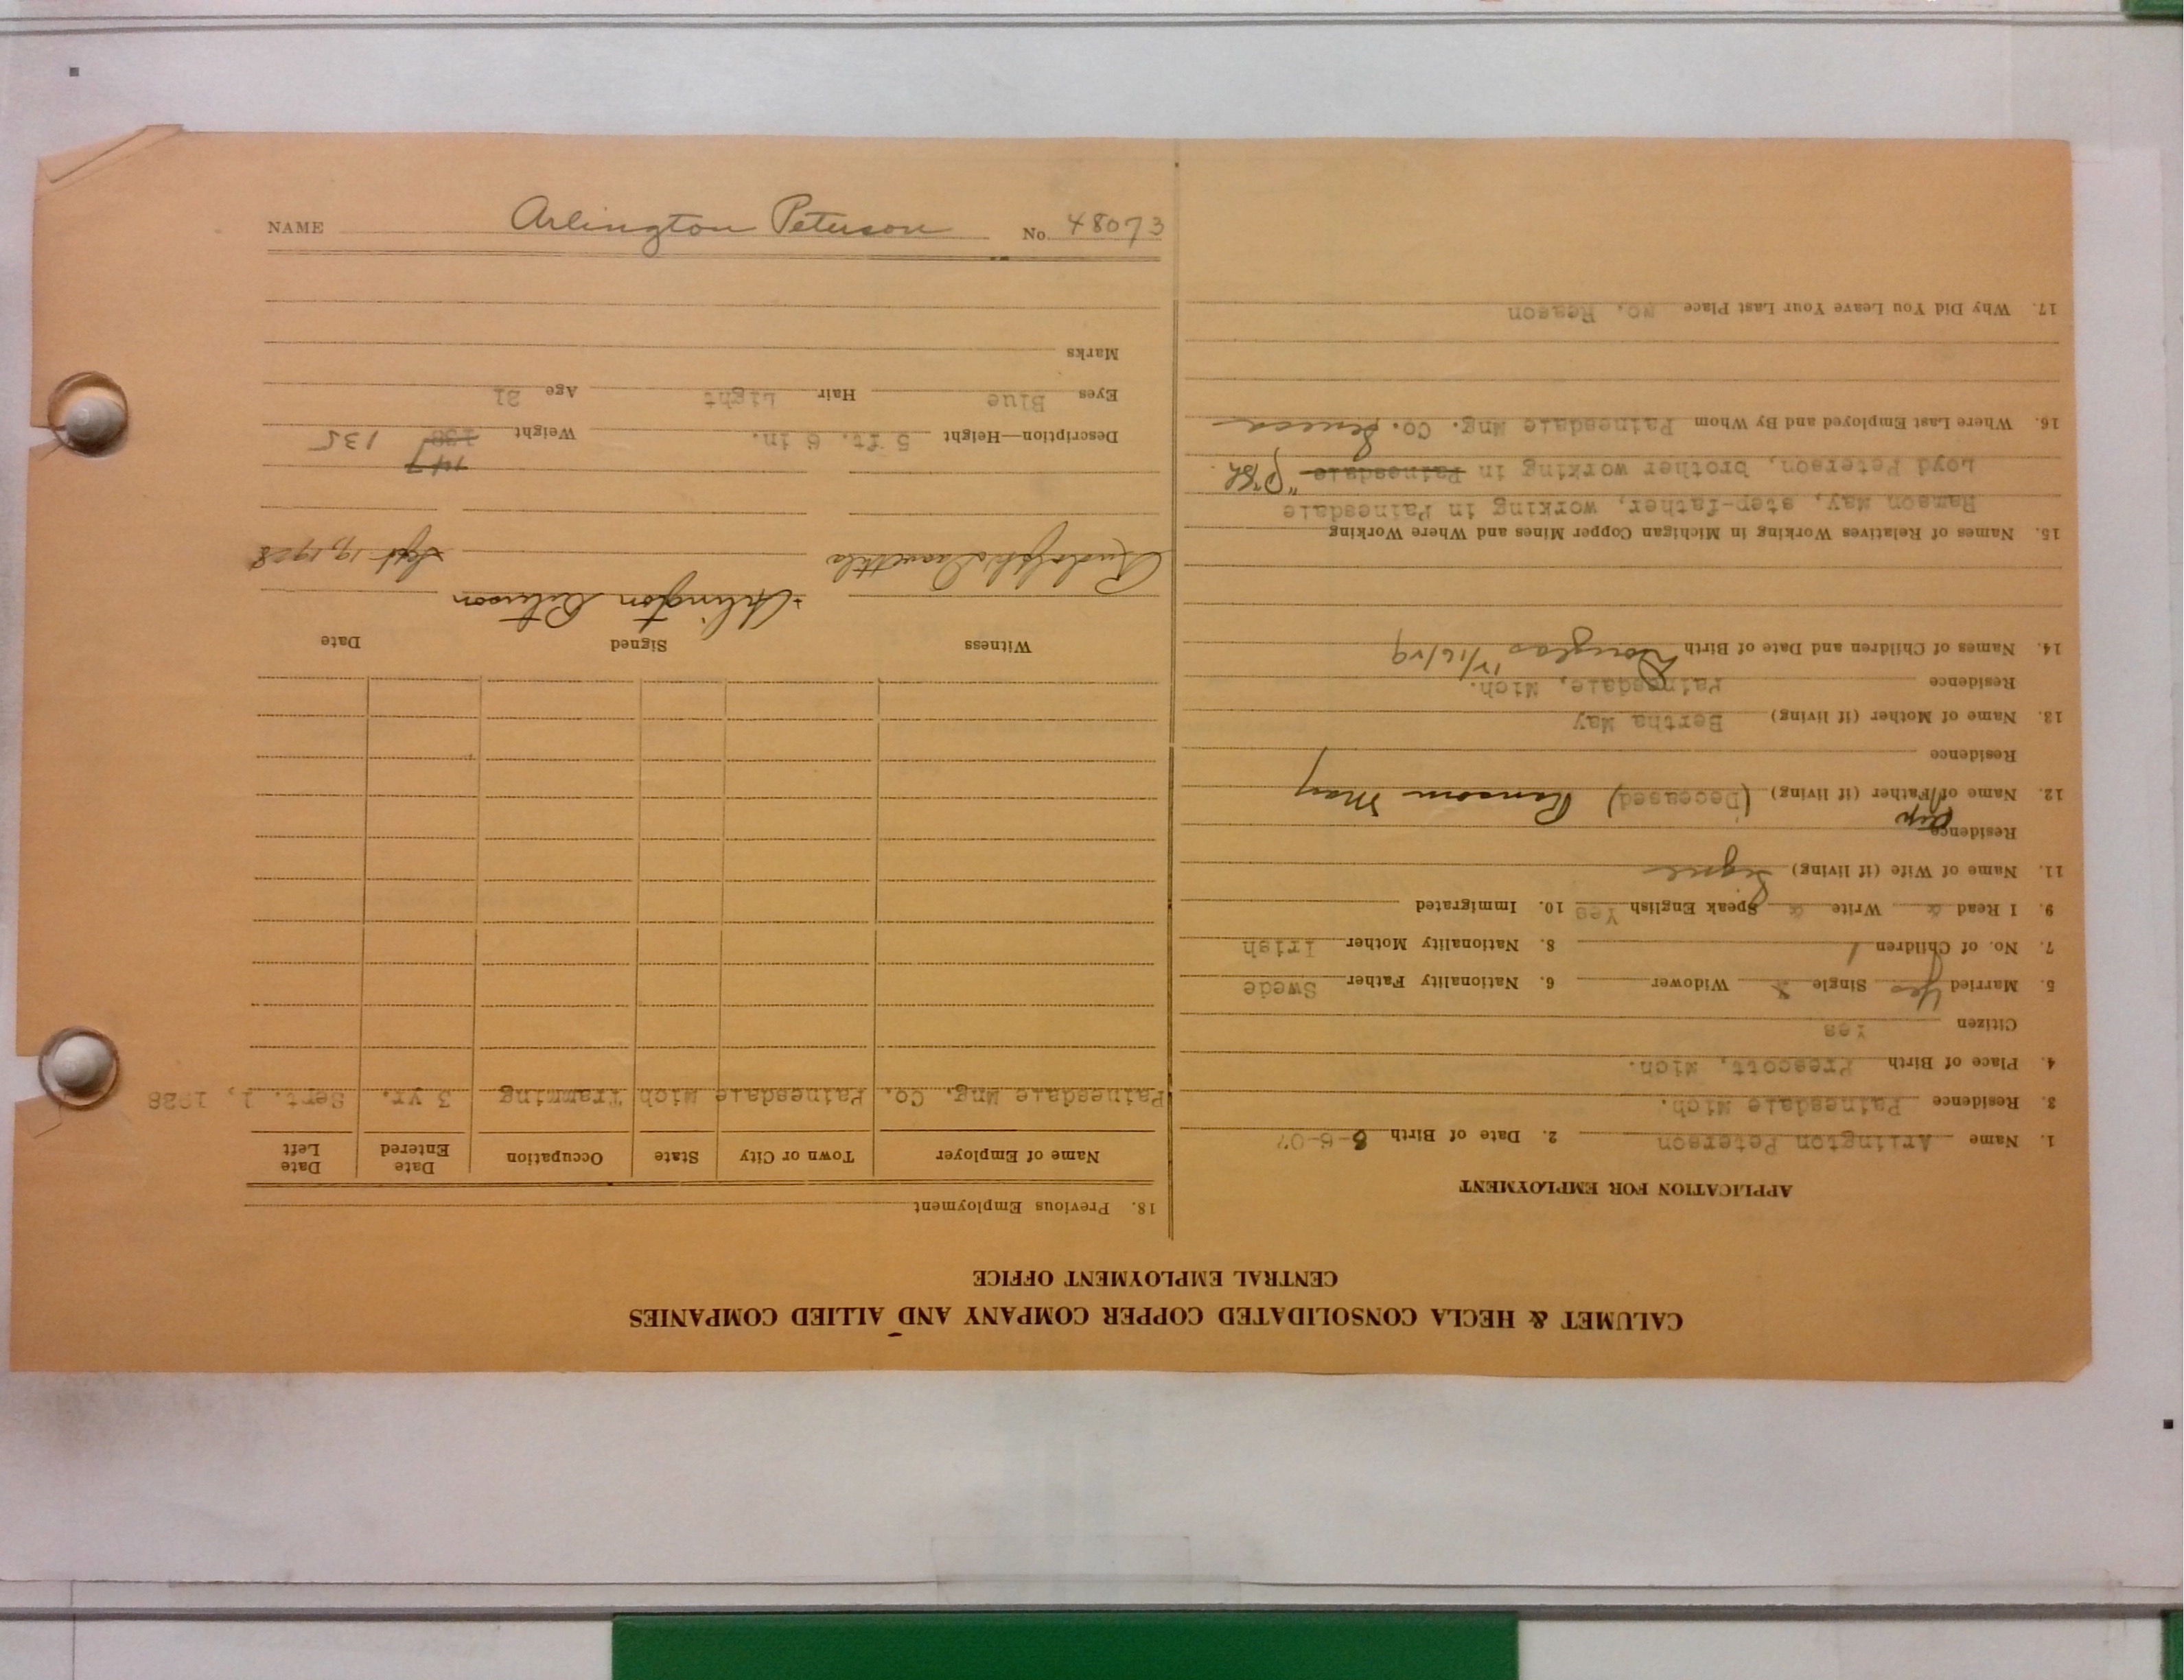 NAME Arlington Peterson No. 48073
CALUMET & HECLA CONSOLIDATED COPPER COMPANY AND ALLIED COMPANIES
CENTRAL EMPLOYMENT OFFICE
APPLICATION FOR EMPLOYMENT
1. Name Arlington Peterson 2. Date of Birth 8-6-07
3. Residence Painesdale Mich.
4. Place of Birth Prescott, Mich.
Citizen Yes
5. Married Yes Single x Widower 6. Nationality Father Swede
7. No. of Children 1 8. Nationality Mother Irish
9. I Read & Write & Speak English Yes 10. Immigrated
11. Name of Wife (if living) Signe
Residence
12. Name of Father (if living) (Deceused) Ransom May
Step
Residence
13. Name of Mother (if living) Bertha May
Residence Painesdale, Mich.
14. Names of Children and Date of Birth Douglas 12/16/29
15. Names of Relatives Working in Michigan Copper Mines and Where Working
Ramson May, step-father, working in Painesdale
Loyd Peterson, brother working in Painesdale
16. Where Last Employed and By Whom Painesdale Mng. Co. Seneca
17. Why Did You Leave Your Last Place No. Reason
18. Previous Employment
Name of Employer Town or City State Occupation Date Entered Date Left
Painesdale Mng. Co. Painesdale Mich Tramming 3 yr. Sert. 1, 1928
Witness Signed Date
Arlington Peterson Sept 19, 1928
147
Description—Height 5 ft. 6 in. Weight 130 135
Eyes Blue Hair Light Age 21
Marks